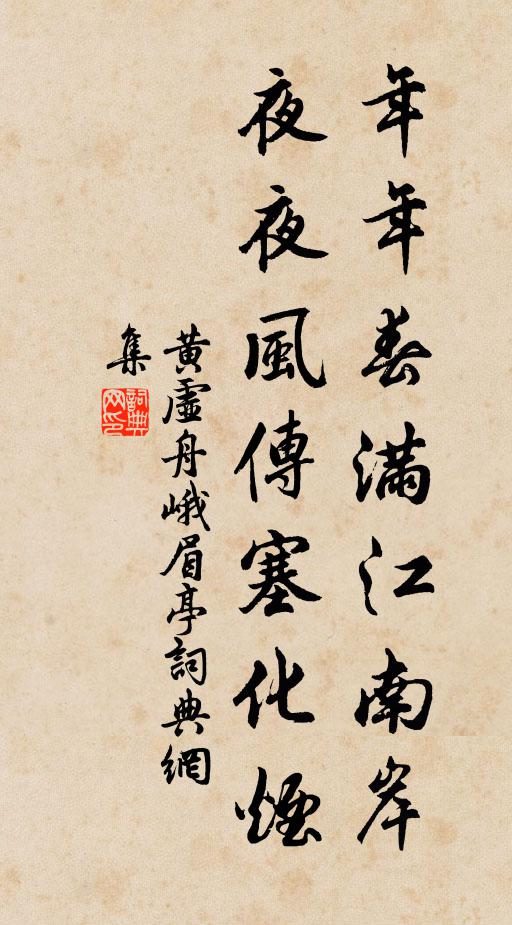 年年春满江南岸
夜夜風傳塞化煙
黄虛舟峨眉亭詞典網
集
詞典网印